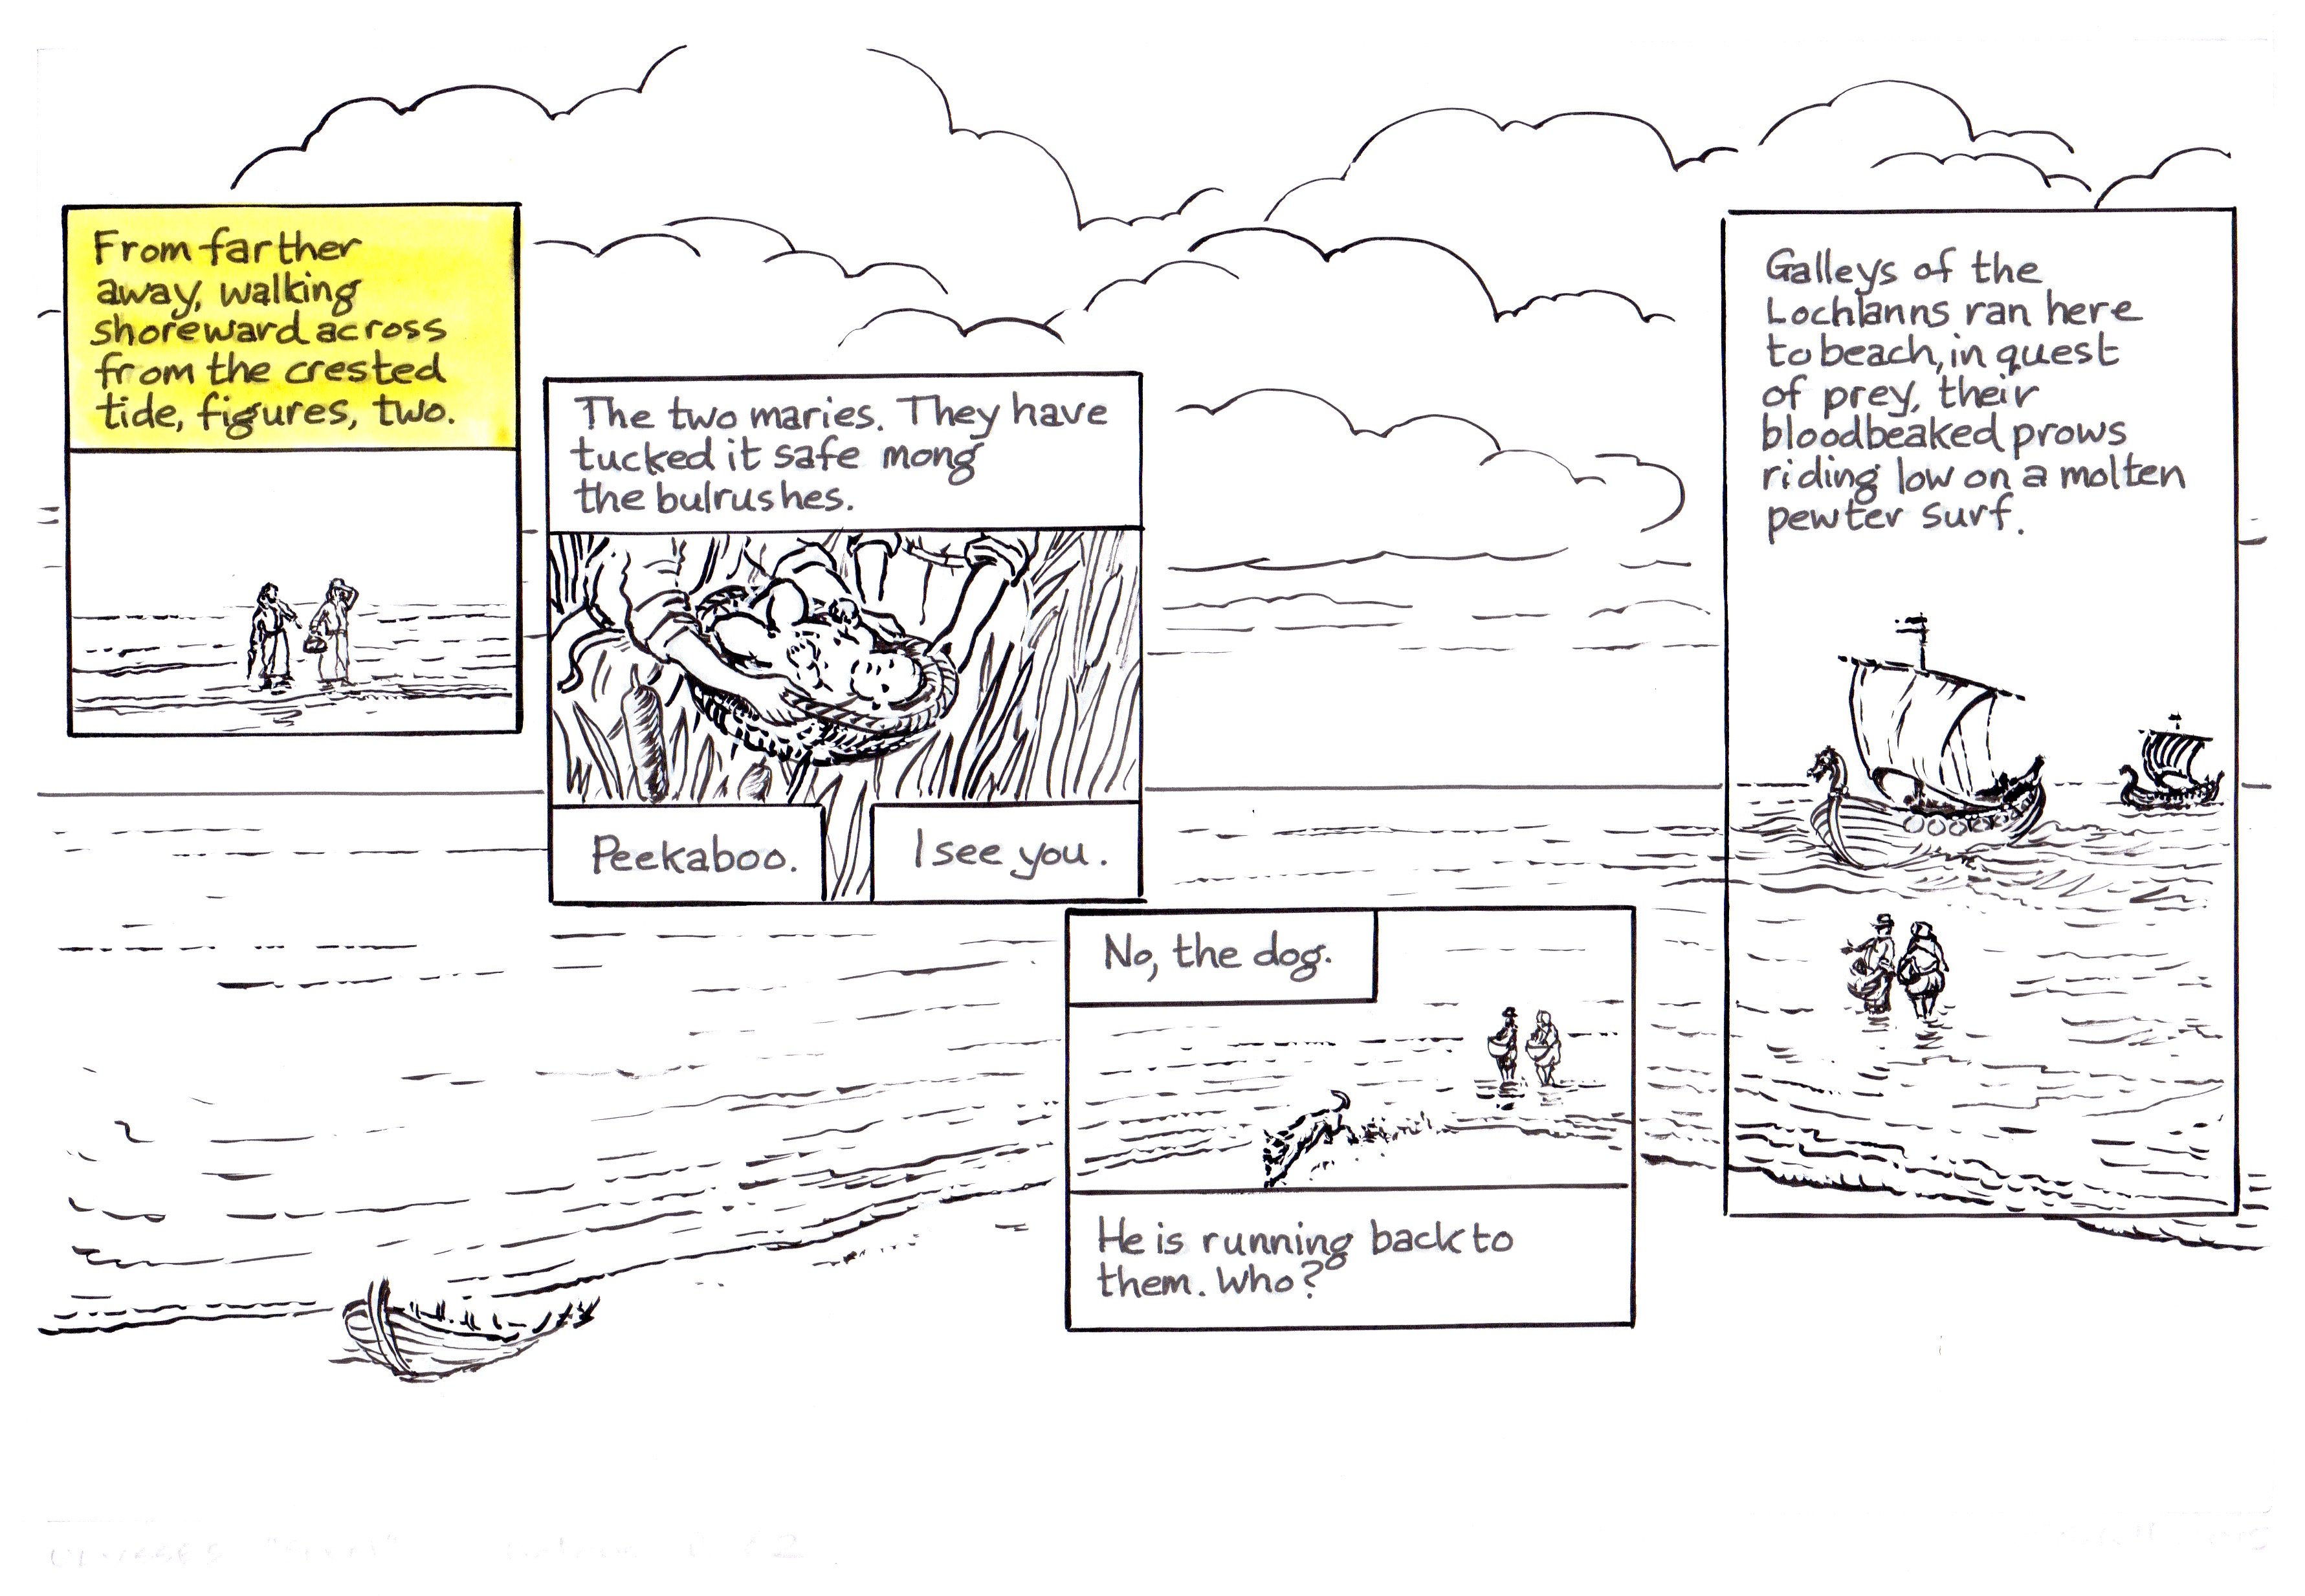 From farther
away, walking
shoreward across
from the crested
tide, figures, two.
The two maries. They have
tucked it safe mong
the bulrushes.
Peekaboo.
I see you.
No, the dog.
He is running back to
them. Who?
Galleys of the
Lochlanns ran here
to beach, in quest
of prey, their
bloodbeaked prows
riding low on a molten
pewter surf.
ULYSSES